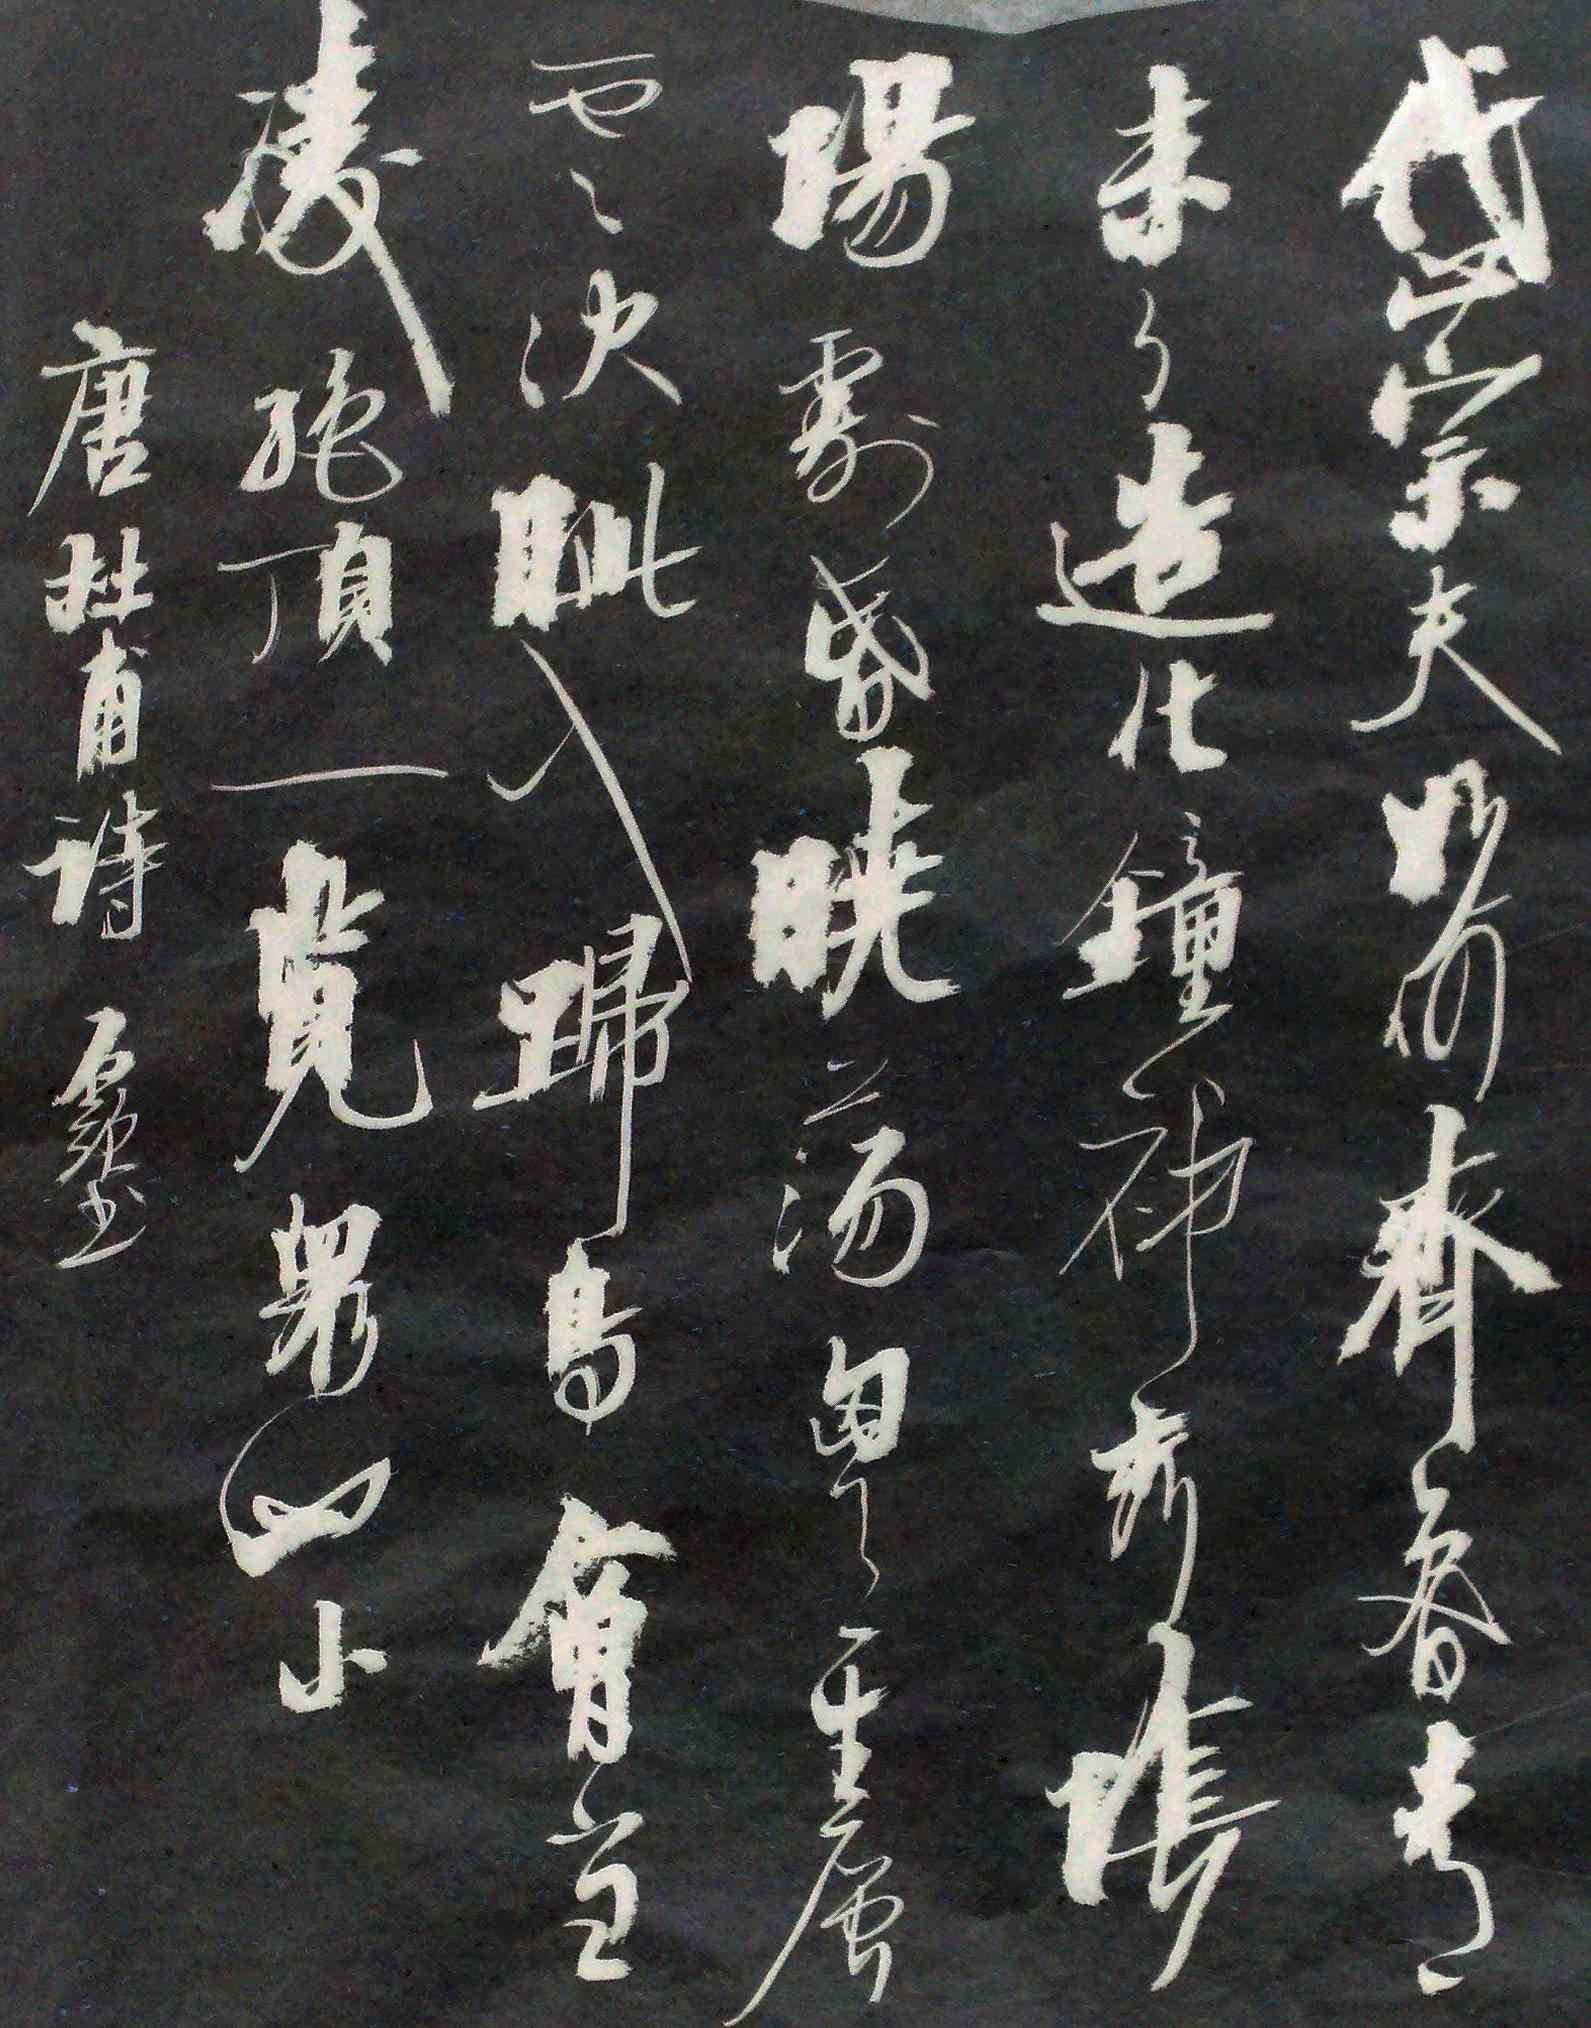 岱宗夫如何齊魯青
未了造化鐘神秀陰
陽割昏曉蕩胸生層
雲決眦入歸鳥會當
凌絕頂一覽眾山小
唐杜甫詩 書